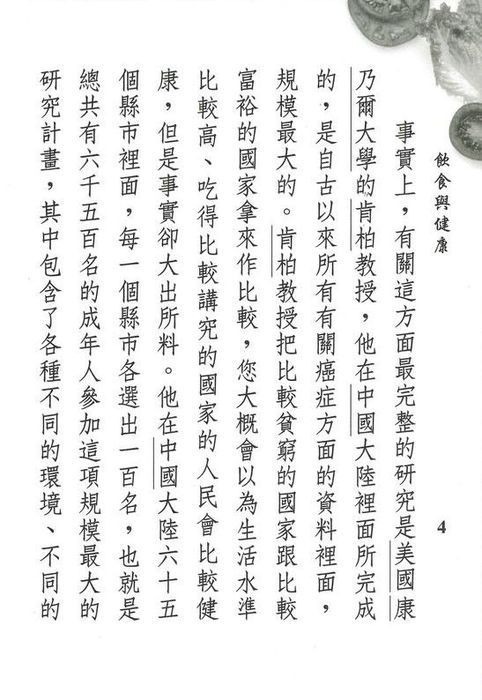 飲食與健康
4
事實上，有關這方面最完整的研究是美國康
乃爾大學的肯柏教授，他在中國大陸裡面所完成
的，是自古以來所有有關癌症方面的資料裡面，
規模最大的。肯柏教授把比較貧窮的國家跟比較
富裕的國家拿來作比較，您大概會以為生活水準
比較高、吃得比較講究的國家的人民會比較健
康，但是事實卻大出所料。他在中國大陸六十五
個縣市裡面，每一個縣市各選出一百名，也就是
總共有六千五百名的成年人參加這項規模最大的
研究計畫，其中包含了各種不同的環境、不同的